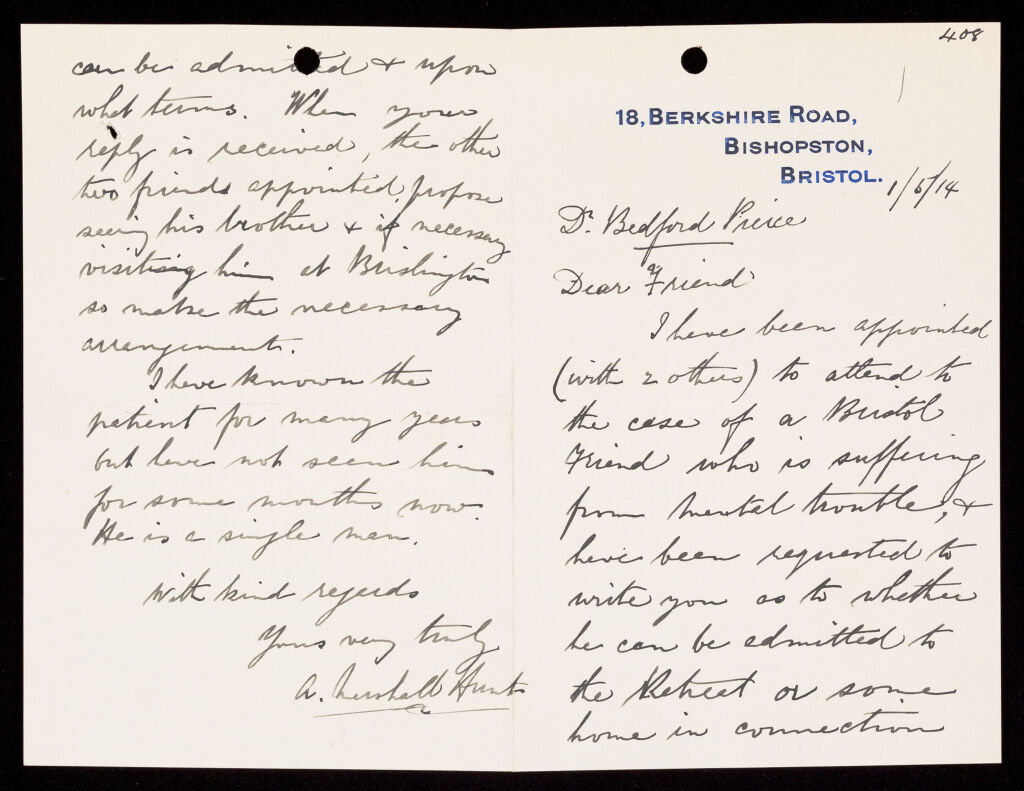 408
18, BERKSHIRE ROAD,
BISHOPSTON,
BRISTOL.
1/5/14
Dr. Bedford Pierce
Dear Friend
I have been appointed
(with 2 others) to attend to
the case of a Bristol
Friend who is suffering
from mental trouble, &
have been requested to
write you as to whether
he can be admitted to
the Retreat or some
home in connection
can be admitted & upon
what terms. When your
reply is received, the other
two friends appointed, propose
seeing his brother & if necessary
visiting him at Brislington
so make the necessary
arrangements.
I have known the
patient for many years
but have not seen him
for some months now.
He is a single man.
With kind regards
Yours very truly
A. Marshall Hunt